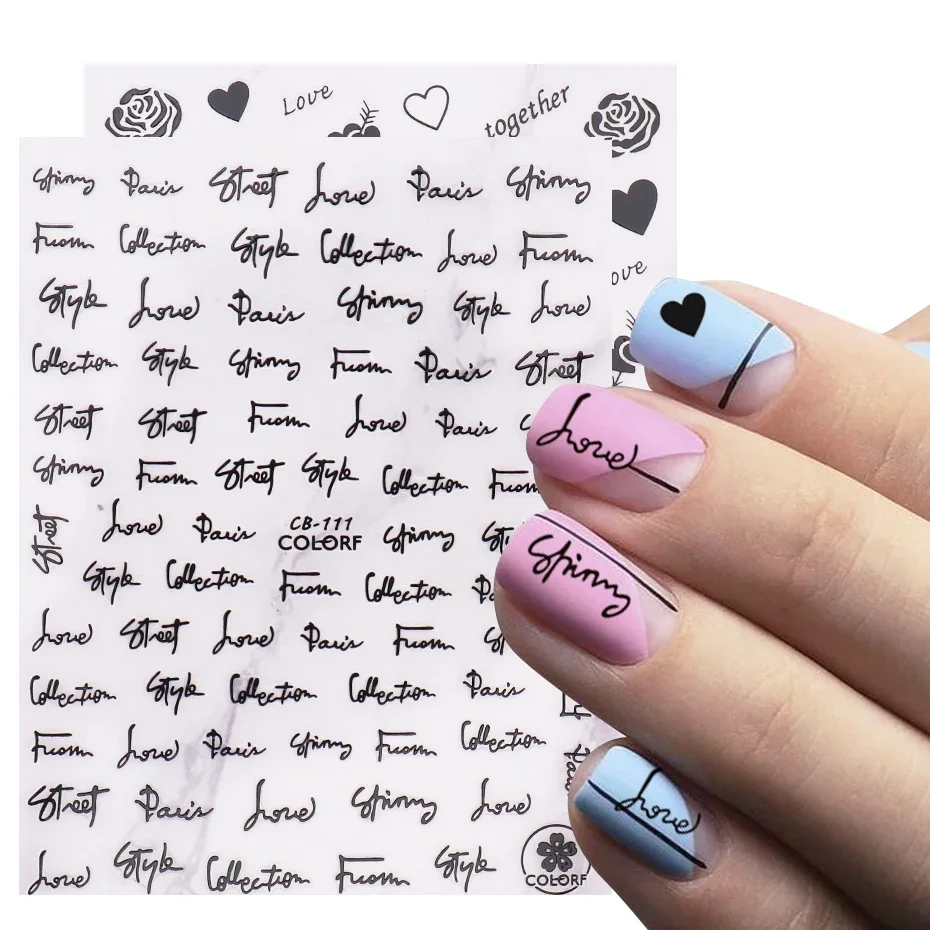 Love
together
Spinny Paris Street Love Paris Spinny
From Collection Style Collection Love From
ove
Style Love Paris Spinny Style Love
Collection Style Spinny From Paris Street
Street Street From Love Paris S
Love
Spinny From Street Style Collection From
Street Love Paris CB-111 Spinny St
COLORF
Spinny
Style Collection From Collection Pa
Love Street Love Paris From St
Collection Style Collection Collection Paris
From Love Paris Spinny From Collection
Paris
Street Paris Love Spinny Love
Love
Love Style Collection From Style
COLORF